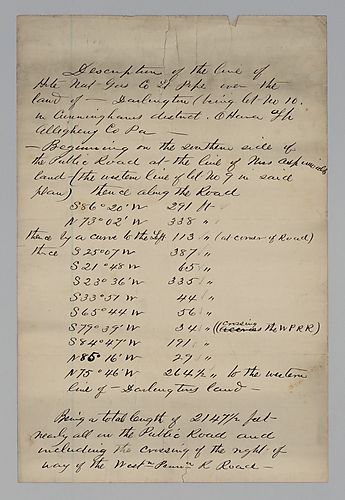 Description of the line of
Hite Nat-Gas Co 2d Pipe over the
land of — Darlington (being lot No 10.
in Cunninghams district. OHara Tp
Allegheny Co Pa —
— Beginning on the southern side of
the Public Road at the line of Mrs
land (the western line of lot No 9 in said
plan) thence along the Road
S 86° 20' W 291 ft
N 73° 02' W 338 "
thence by a curve to the left 113 " (at corner of Road)
thence S 25° 07 W 387 "
S 21° 48 W 65 "
S 23° 36' W 335 "
S 33° 51 W 44 "
S 65° 44 W 56 "
S 79° 39' W 34 " (crossing the W P R R)
S 84° 47' W 191 "
N 85° 16' W 29 "
N 75° 46' W 264 1/2 " to the western
line of — Darlingtons land —
Being a total length of 2147 1/2 feet
nearly all in the Public Road and
including the crossing of the right of
way of the West n Penn R Road —